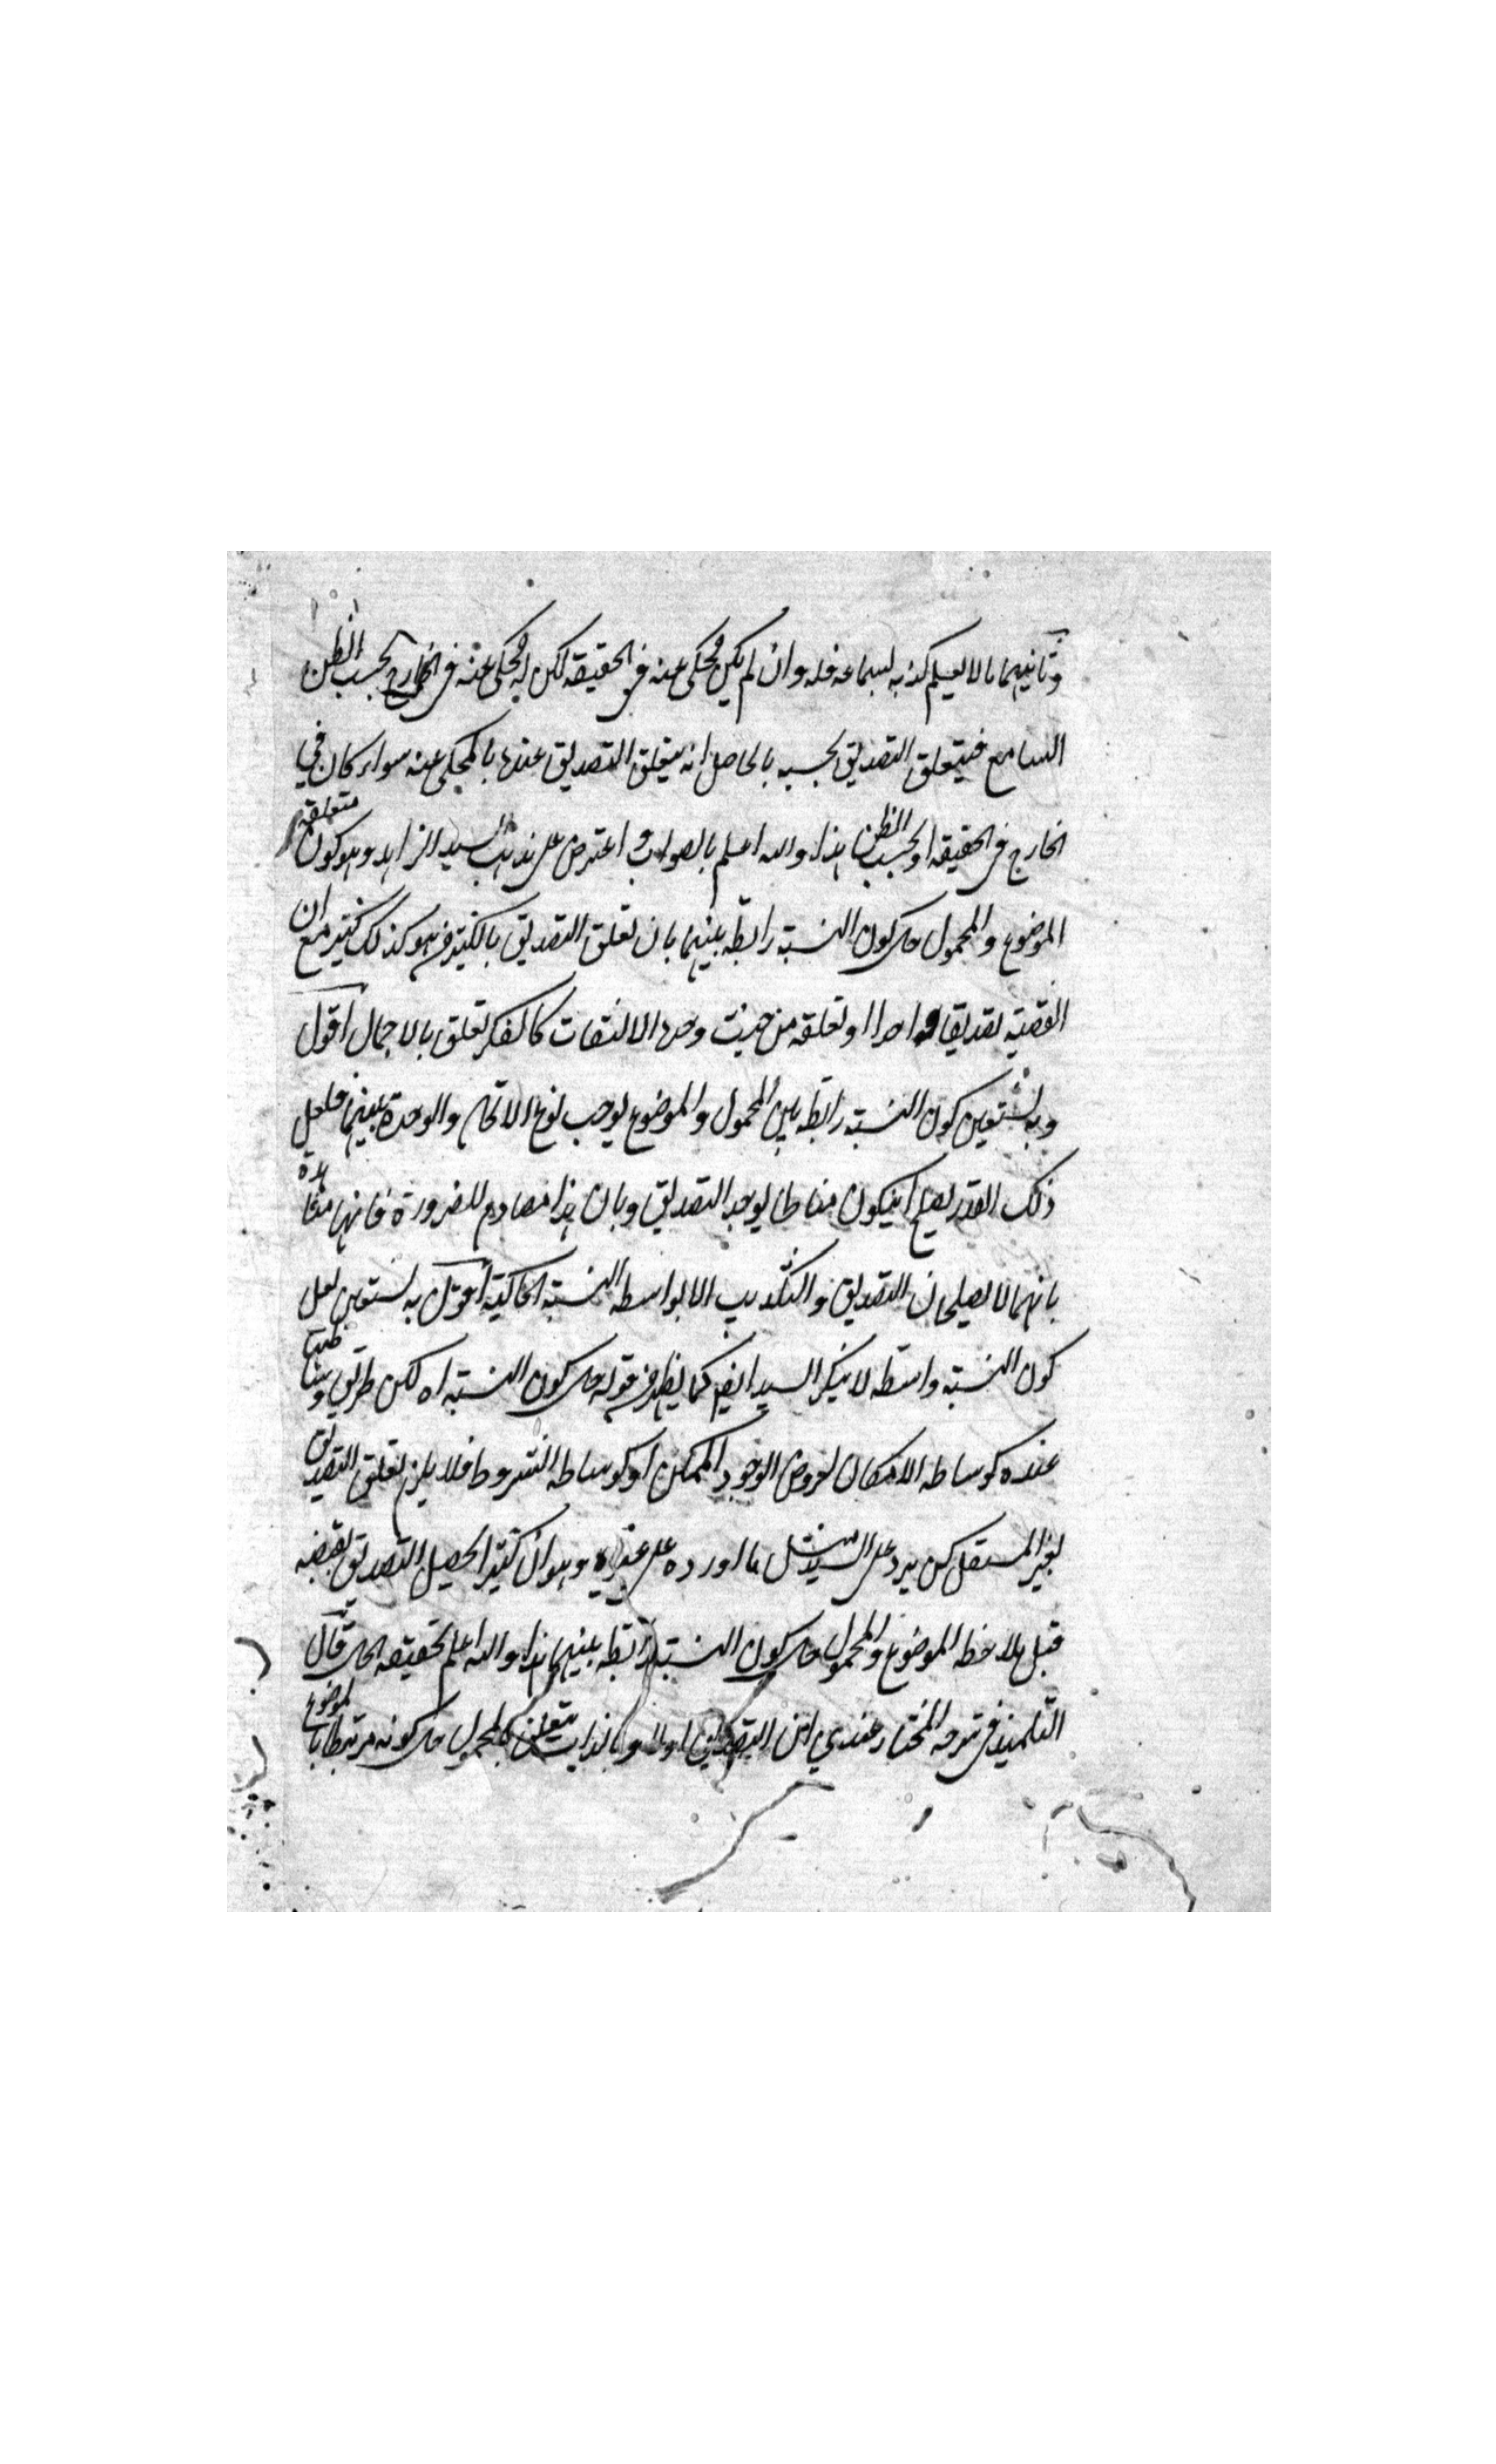 وثانيهما ما لا يعلم كذبه لسماعه فله وان لم يكن محكى عنه فى الحقيقة لكن له محكى عنه فى الخارج بحسب الظن
السامع فيتعلق التصديق بحسبه بالحاصل انه يتعلق التصديق عندنا بالمحكى عنه سواء كان في
الخارج فى الحقيقة او بحسب الظن هذا والله اعلم بالصواب و اعترض على مذهب السيد الزاهد وهو كون متعلقه
الموضوع والمحمول حال كون النسبة رابطة بينهما بان تعلق التصديق بالكثير من هو كذلك كثير مع ان
القضية تصديقا واحدا او تعلقه من حيث وحدة الالتفات كالفكر تعلق بالاجمال اقول
وبه نستعين كون النسبة رابطة بين المحمول والموضوع يوجب نوع الاتحاد والوحدة بينهما فلعل
ذلك القدر يصلح ان يكون مناطا لوحدة التصديق وبان هذا مصادم للضرورة فانها شاهدة
بانهما لا يصلحان التصديق والتكذيب الا بواسطة النسبة الحاكية اقول به نستعين لعل
كون النسبة واسطة لا ينكر السيد ايضا كما يظهر من قوله حال كون النسبة اه لكن طريق وساطتها
عنده كوساطة الامكان لعروض الوجود الممكن او كوساطة الشروط فلا يلزم تعلق التصديق
لغير المستقل لكن يرد على السيد مثل ما اورده على غيره وهو ان كثيرا يحصل التصديق بقضية
قبل ملاحظة الموضوع والمحمول حال كون النسبة رابطة بينهما هذا والله اعلم بحقيقة الحال قال
التلميذ فى شرحه المختار عندي ان التصديق اولا وبالذات يتعلق بالمحمول حال كونه مرتبطا بالموضوع